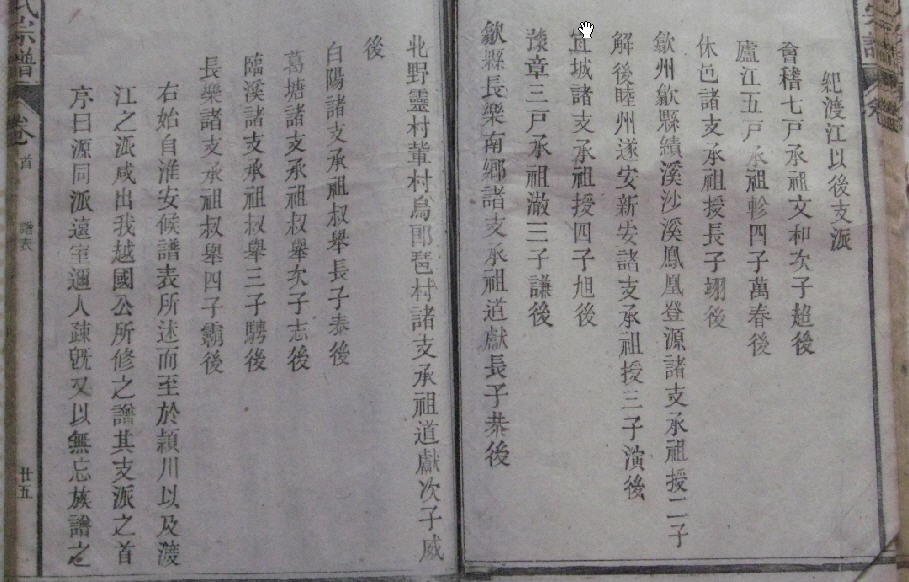 紀渡江以後支派
會稽七戸承祖文和次子超後
廬江五戸承祖軫四子萬春後
休邑諸支承祖授長子翊後
歙州歙縣績溪沙溪鳳凰登源諸支承祖授二子
解後睦州遂安新安諸支承祖授三子演後
宣城諸支承祖授四子旭後
豫章三戸承祖澈三子謙後
歙縣長樂南鄉諸支承祖道獻長子恭後
北野靈村葷村烏郎琶村諸支承祖道獻次子威
後
白陽諸支承祖叔舉長子泰後
葛塘諸支承祖叔舉次子志後
臨溪諸支承祖叔舉三子騁後
長樂諸支承祖叔舉四子霸後
右始自淮安候譜表所述而至於頴川以及渡
江之派咸出我越國公所修之譜其支派之首
序曰源同派遠室邇人疎旣又以無忘族譜之
氏宗譜
卷首
譜表
廿五
宗譜
卷